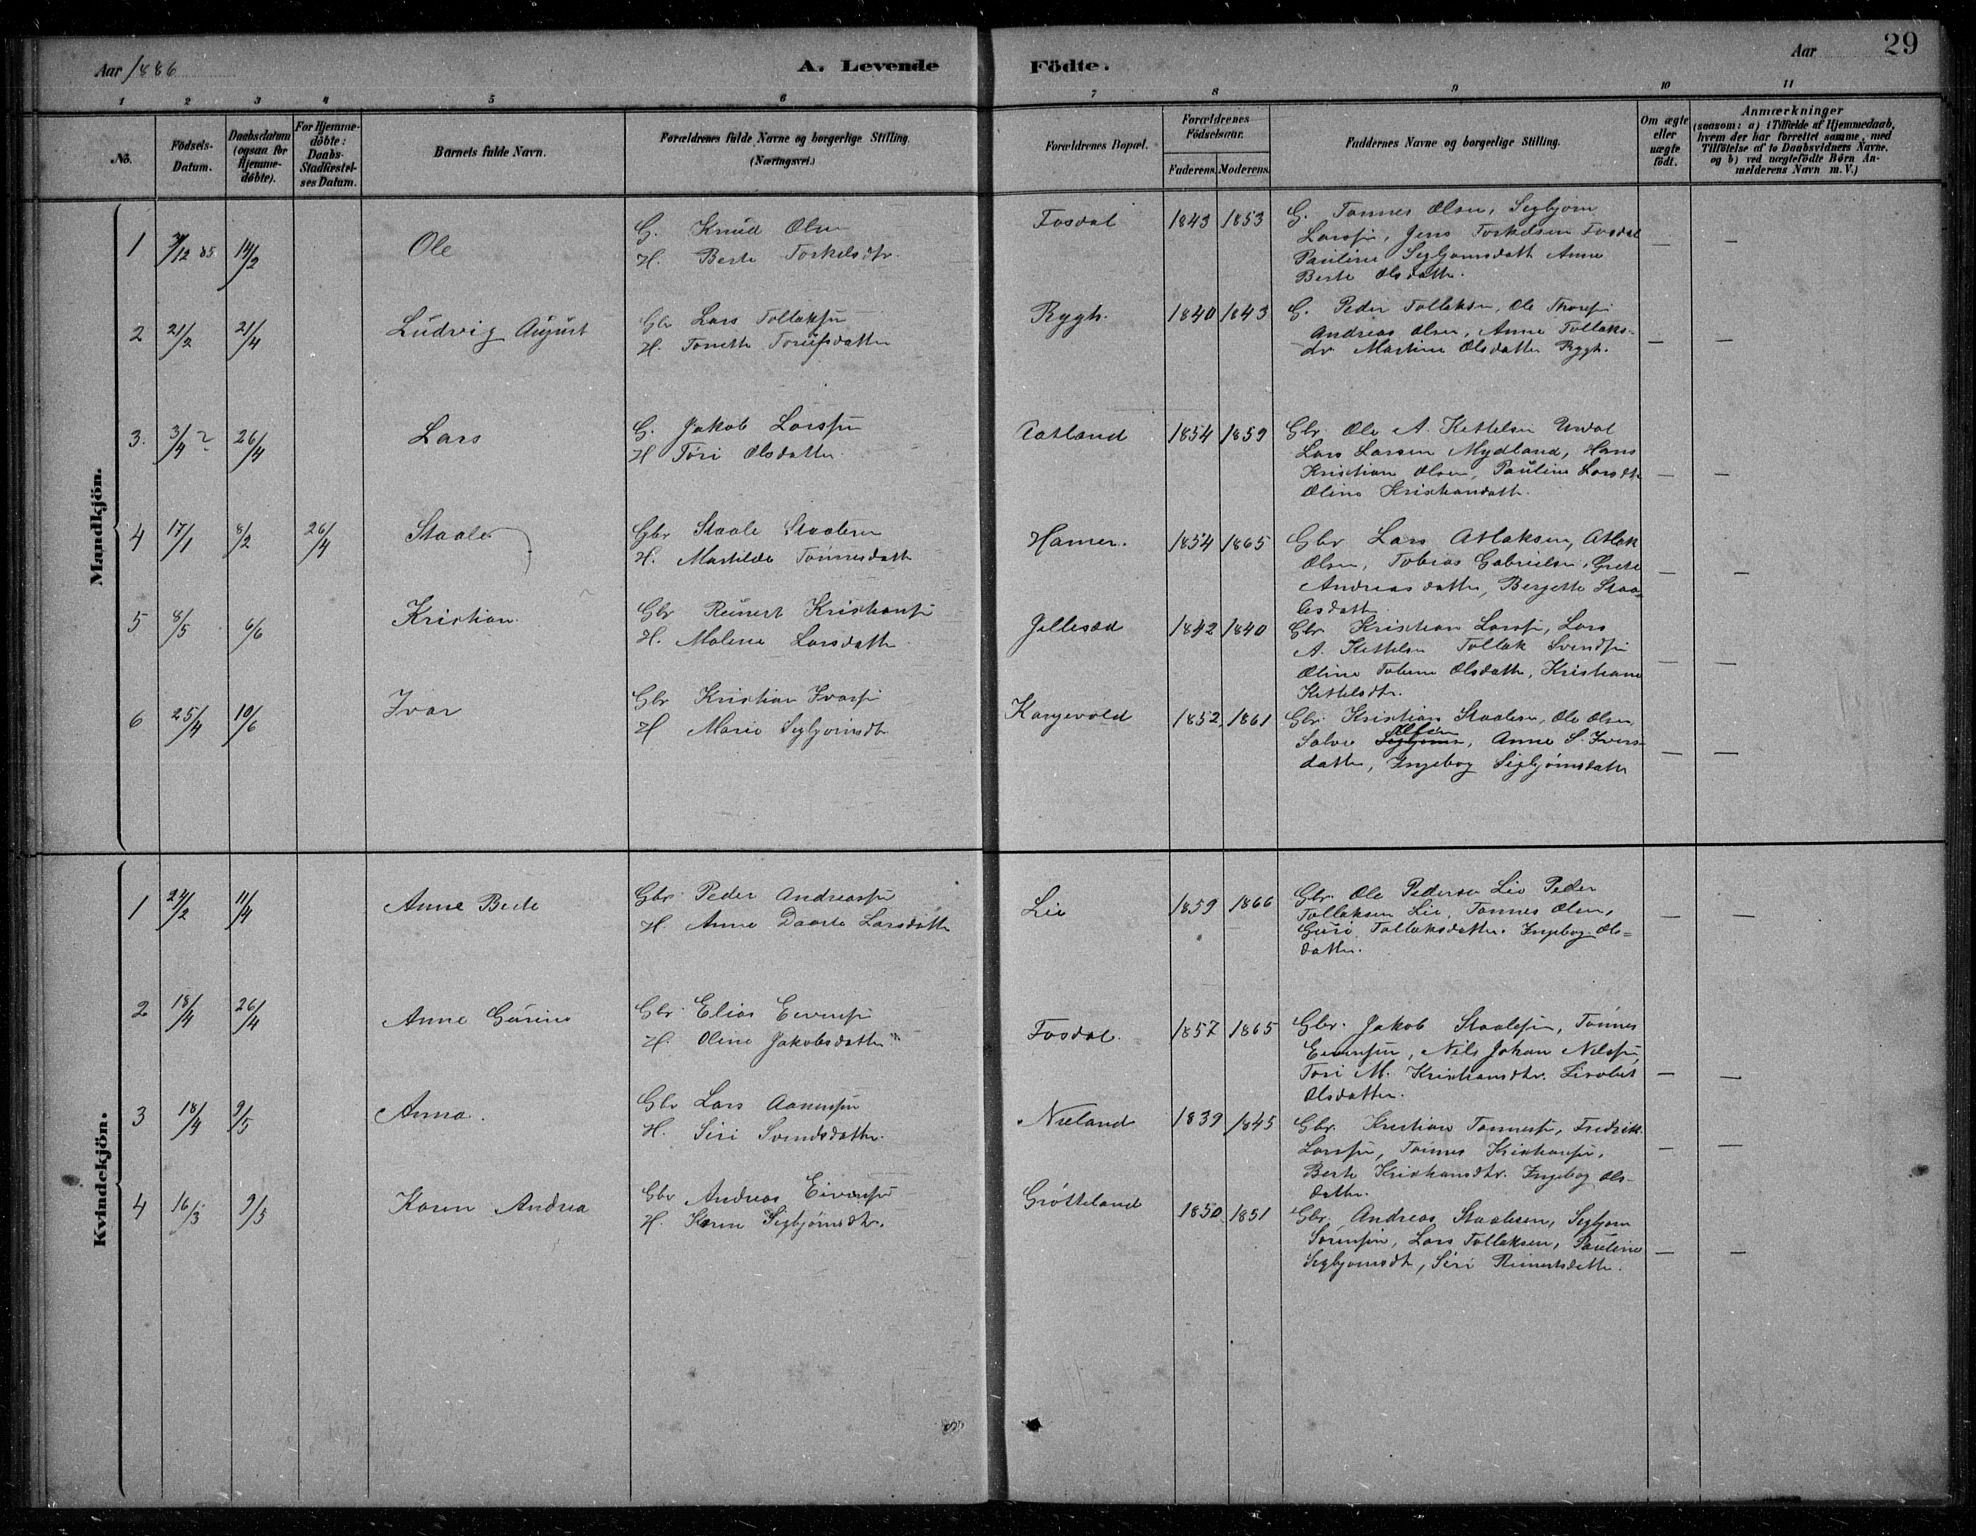 Aar 1886
A. Levende Födte.
Aar
29
1 2 3 4 5 6 7 8 9 10 11
No.
Födsels-Datum.
Daabsdatum (ogsaa for Hjemme-döbte).
For Hjemme-döbte: Daabs-Stadfæstel-ses Datum.
Barnets fulde Navn.
Forældrenes fulde Navne og borgerlige Stilling.
(Næringsvei.)
Forældrenes Bopæl.
Forældrenes Födselsaar.
Faderens. Moderens.
Faddernes Navne og borgerlige Stilling.
Om ægte eller uægte födt.
Anmærkninger
(saasom: a) i Tilfælde af Hjemmedaab, hvem der har forrettet samme, med Tilföielse af to Daabsvidners Navne, og b) ved uægtefödte Börn Anmelderens Navn m. V.)
Mandkjön.
1 /12 85 14/2 Ole
G. Knud Olsen
H. Berte Torkelsdtr.
Fosdal 1843 1853
G. Tønnes Olsen, Segbjørn
Larssøn, Jens Torkelsen Fosdal
Pauline Segbjørnsdatt Anne
Berte Olsdatter.
— —
2 21/2 21/4 Ludvig August
Gbr Lars Tollaksen
H. Tonette Torufsdatter
Rygh. 1840 1843
G. Peder Tollaksen, Ole Thorsen
Andreas Olsen, Anne Tollaks-
dtr Martine Olsdatter Rygh.
— —
3. 3/4 26/4 Lars
G. Jakob Larssen
H Tori Olsdatter.
Aatland 1854 1859
Gbr. Ole A. Kettelsen Urdal
Lars Larsen Mydland, Hans
Kristian Olsen, Pauline Larsdtr
Oline Kristiansdatt.
— —
4 17/1 8/2 26/4 Staale
Gbr Staale Staalesen
H. Mathilde Tønnesdatt
Hamer. 1854 1865
Gbr Lars Atlaksen, Atlak
Olsen, Tobias Gabrielsen, Grete
Andreasdatter, Bergette Staa-
lesdatter
— —
5 8/5 6/6 Kristian.
Gbr Reinert Kristiansen
H. Malene Larsdatter
Jallesæd 1842 1840
Gbr. Kristian Larssen, Lars
A. Kettelsen Tollak Svendsen
Oline Tobine Olsdatter, Kristiane
Kettelsdtr.
— —
6 25/4 10/6 Ivar
Gbr Kristian Ivarsen
H Marie Segbjørnsdtr
Kongevold 1852 1861
Gbr. Kristian Staalesen, Ole Olsen
Salve Olsen, Anne S. Ivers-
datter, Ingebog Segbjørnsdatter
— —
Kvindekjön.
1 24/2 11/4 Anne Berte
Gbr Peder Andreassen
H. Anne Daarte Larsdatter
Lie 1859 1866
Gbr Ole Pedersen Lie Peder
Tollaksen Lie, Tønnes Olsen,
Guri Tollaksdatter. Ingebog Ols-
datter.
— —
2 18/4 26/4 Anne Gurine
Gbr. Elias Eivensen
H. Oline Jakobsdatter
Fosdal. 1857 1865
Gbr. Jakob Staalesen, Tønnes
Eivensen, Nils Johan Nilssen,
Tori M. Kristiansdtr. Lisabet
Olsdatter.
— —
3 18/4 9/5 Anna.
Gbr Lars Aanensen
H. Siri Svendsdatter.
Nieland 1839 1845
Gbr. Kristian Tønnessen, Fredrik
Larssen, Tønnes Kristiansen,
Berte Kristiansdtr. Ingebog Ols-
datter.
— —
4 16/3 9/5 Karen Andrea
Gbr Andreas Eivensen
H. Karen Segbjørnsdtr.
Grøtteland 1850 1851
Gbr. Andreas Staalesen, Segbjørn
Sørensen, Lars Tollaksen, Pauline
Segbjørnsdt, Siri Reinertsdatter.
— —